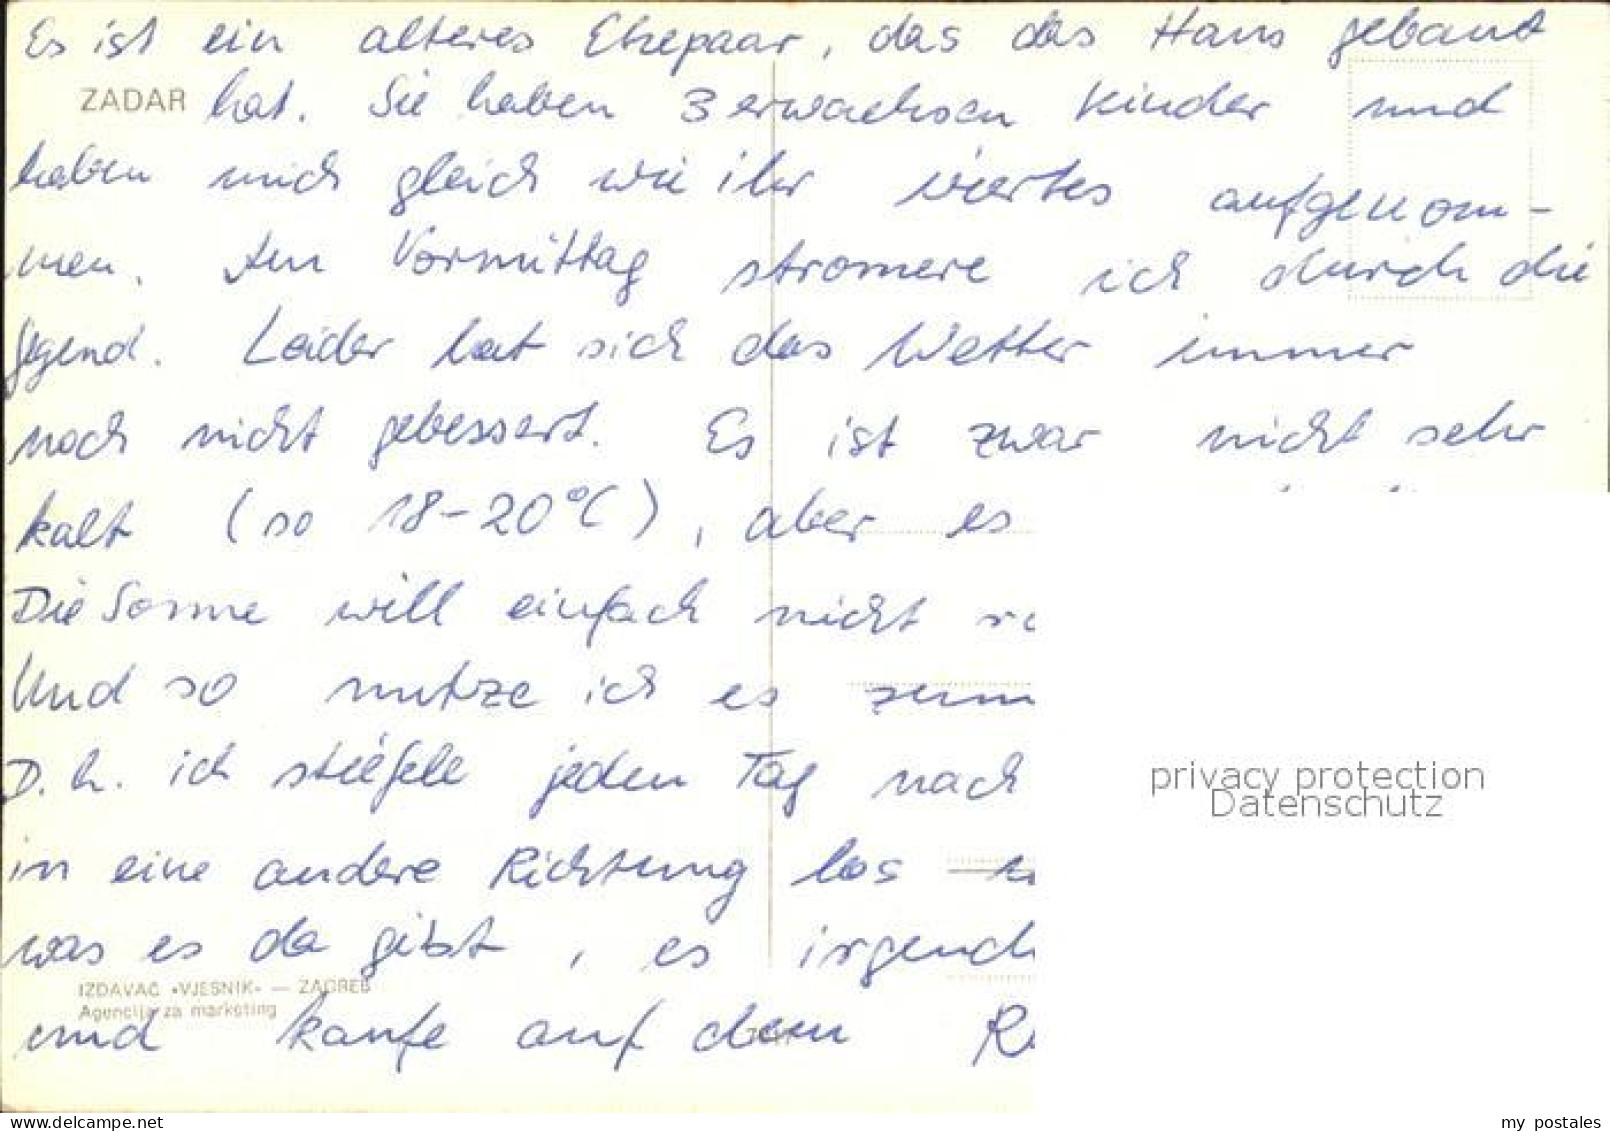 Es ist ein älteres Ehepaar, das das Haus gebaut
ZADAR
hat. Sie haben 3 erwachsen Kinder und
haben mich gleich wie ihr viertes aufgenom-
men. Am Vormittag stromere ich durch die
Gegend. Leider hat sich das Wetter immer
noch nicht gebessert. Es ist zwar nicht sehr
kalt (so 18-20°C), aber es
Die Sonne will einfach nicht
Und so nutze ich es zum
D.h. ich stiefele jeden Tag nach
in eine andere Richtung los
was es da gibt, es irgend
IZDAVAČ «VJESNIK» — ZAGREB
Agencija za marketing
und kaufe auf dem
privacy protection
Datenschutz
www.delcampe.net
my_postales